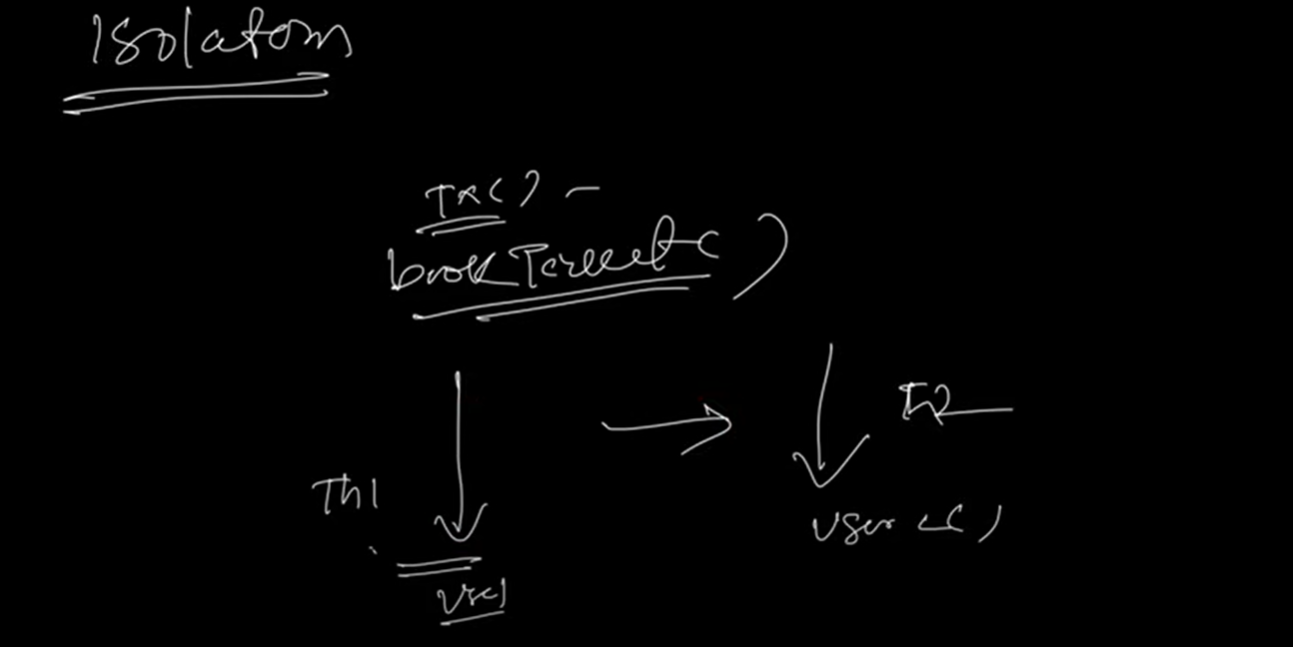 Isolation
Tx() -
bookTicket()
Th1
T2
user